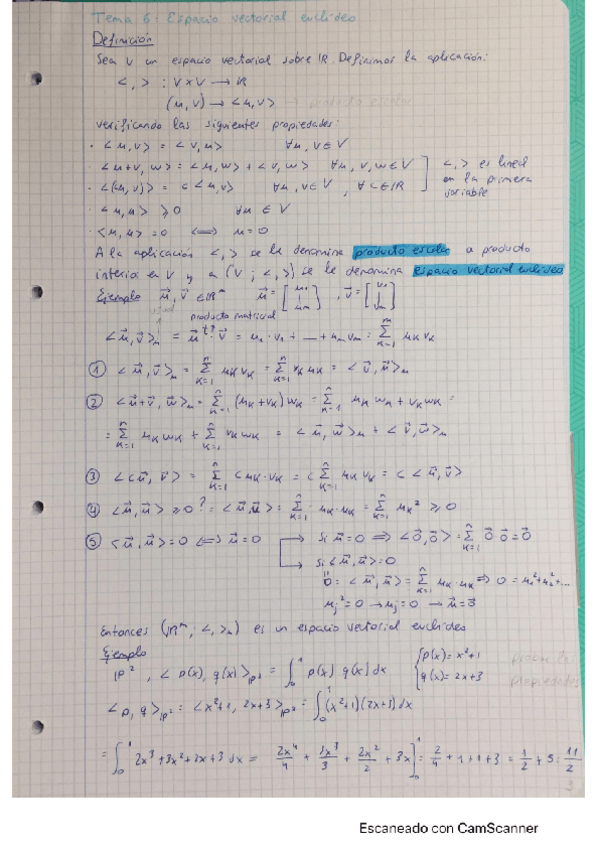 Tema 6: Espacio vectorial euclídeo
Definición
Sea V un espacio vectorial sobre ℝ. Definimos la aplicación:
<,> : V×V → ℝ
(u,v) → <u,v> → producto escalar
verificando las siguientes propiedades:
· <u,v> = <v,u> ∀u,v∈V
· <u+v,w> = <u,w> + <v,w> ∀u,v,w∈V ] <,> es lineal
· <(cu,v)> = c<u,v> ∀u,v∈V, ∀c∈ℝ ] en la primera variable
· <u,u> ≥0 ∀u∈V
· <u,u> =0 ⟺ u=0
A la aplicación <,> se le denomina producto escalar o producto
interior en V y a (V; <,>) se le denomina espacio vectorial euclídeo
Ejemplo u⃗,v⃗ ∈ℝⁿ u⃗ = [u₁ ⋮ uₙ], v⃗ = [v₁ ⋮ vₙ]
producto matricial
<u⃗,v⃗>ₙ = u⃗ᵗ·v⃗ = u₁·v₁ + ... + uₙvₙ = Σₖ₌₁ⁿ uₖvₖ
① <u⃗,v⃗>ₙ = Σₖ₌₁ⁿ uₖvₖ = Σₖ₌₁ⁿ vₖuₖ = <v⃗,u⃗>ₙ
② <u⃗+v⃗,w⃗>ₙ = Σₖ₌₁ⁿ (uₖ+vₖ)wₖ = Σₖ₌₁ⁿ uₖwₖ + vₖwₖ =
= Σₖ₌₁ⁿ uₖwₖ + Σₖ₌₁ⁿ vₖwₖ = <u⃗,w⃗>ₙ + <v⃗,w⃗>ₙ
③ <cu⃗,v⃗> = Σₖ₌₁ⁿ cuₖ·vₖ = cΣₖ₌₁ⁿ uₖvₖ = c<u⃗,v⃗>
④ <u⃗,u⃗> ≥0? = <u⃗,u⃗> = Σₖ₌₁ⁿ uₖ·uₖ = Σₖ₌₁ⁿ uₖ² ≥0
⑤ <u⃗,u⃗>=0 ⟺ u⃗=0 → Si u⃗=0 ⟹ <0⃗,0⃗> = Σₖ₌₁ⁿ 0⃗·0⃗=0⃗
→ Si <u⃗,u⃗>=0
0 = <u⃗,u⃗> = Σₖ₌₁ⁿ uₖ·uₖ ⟹ 0 = u₁²+u₂²+...
uⱼ²=0 → uⱼ=0 → u⃗=0⃗
Entonces (ℝⁿ, <,>ₙ) es un espacio vectorial euclídeo
Ejemplo
ℙ², <p(x),q(x)>ℙ² = ∫₀¹ p(x) q(x) dx {p(x)=x²+1 {q(x)=2x+3
propiedades
<p,q>ℙ² = <x²+1, 2x+3>ℙ² = ∫₀¹ (x²+1)(2x+3) dx
= ∫₀¹ 2x³+3x²+2x+3 dx = 2x⁴/4 + 3x³/3 + 2x²/2 + 3x]₀¹ = 2/4 + 1+1+3 = 1/2 + 5 = 11/2
Escaneado con CamScanner